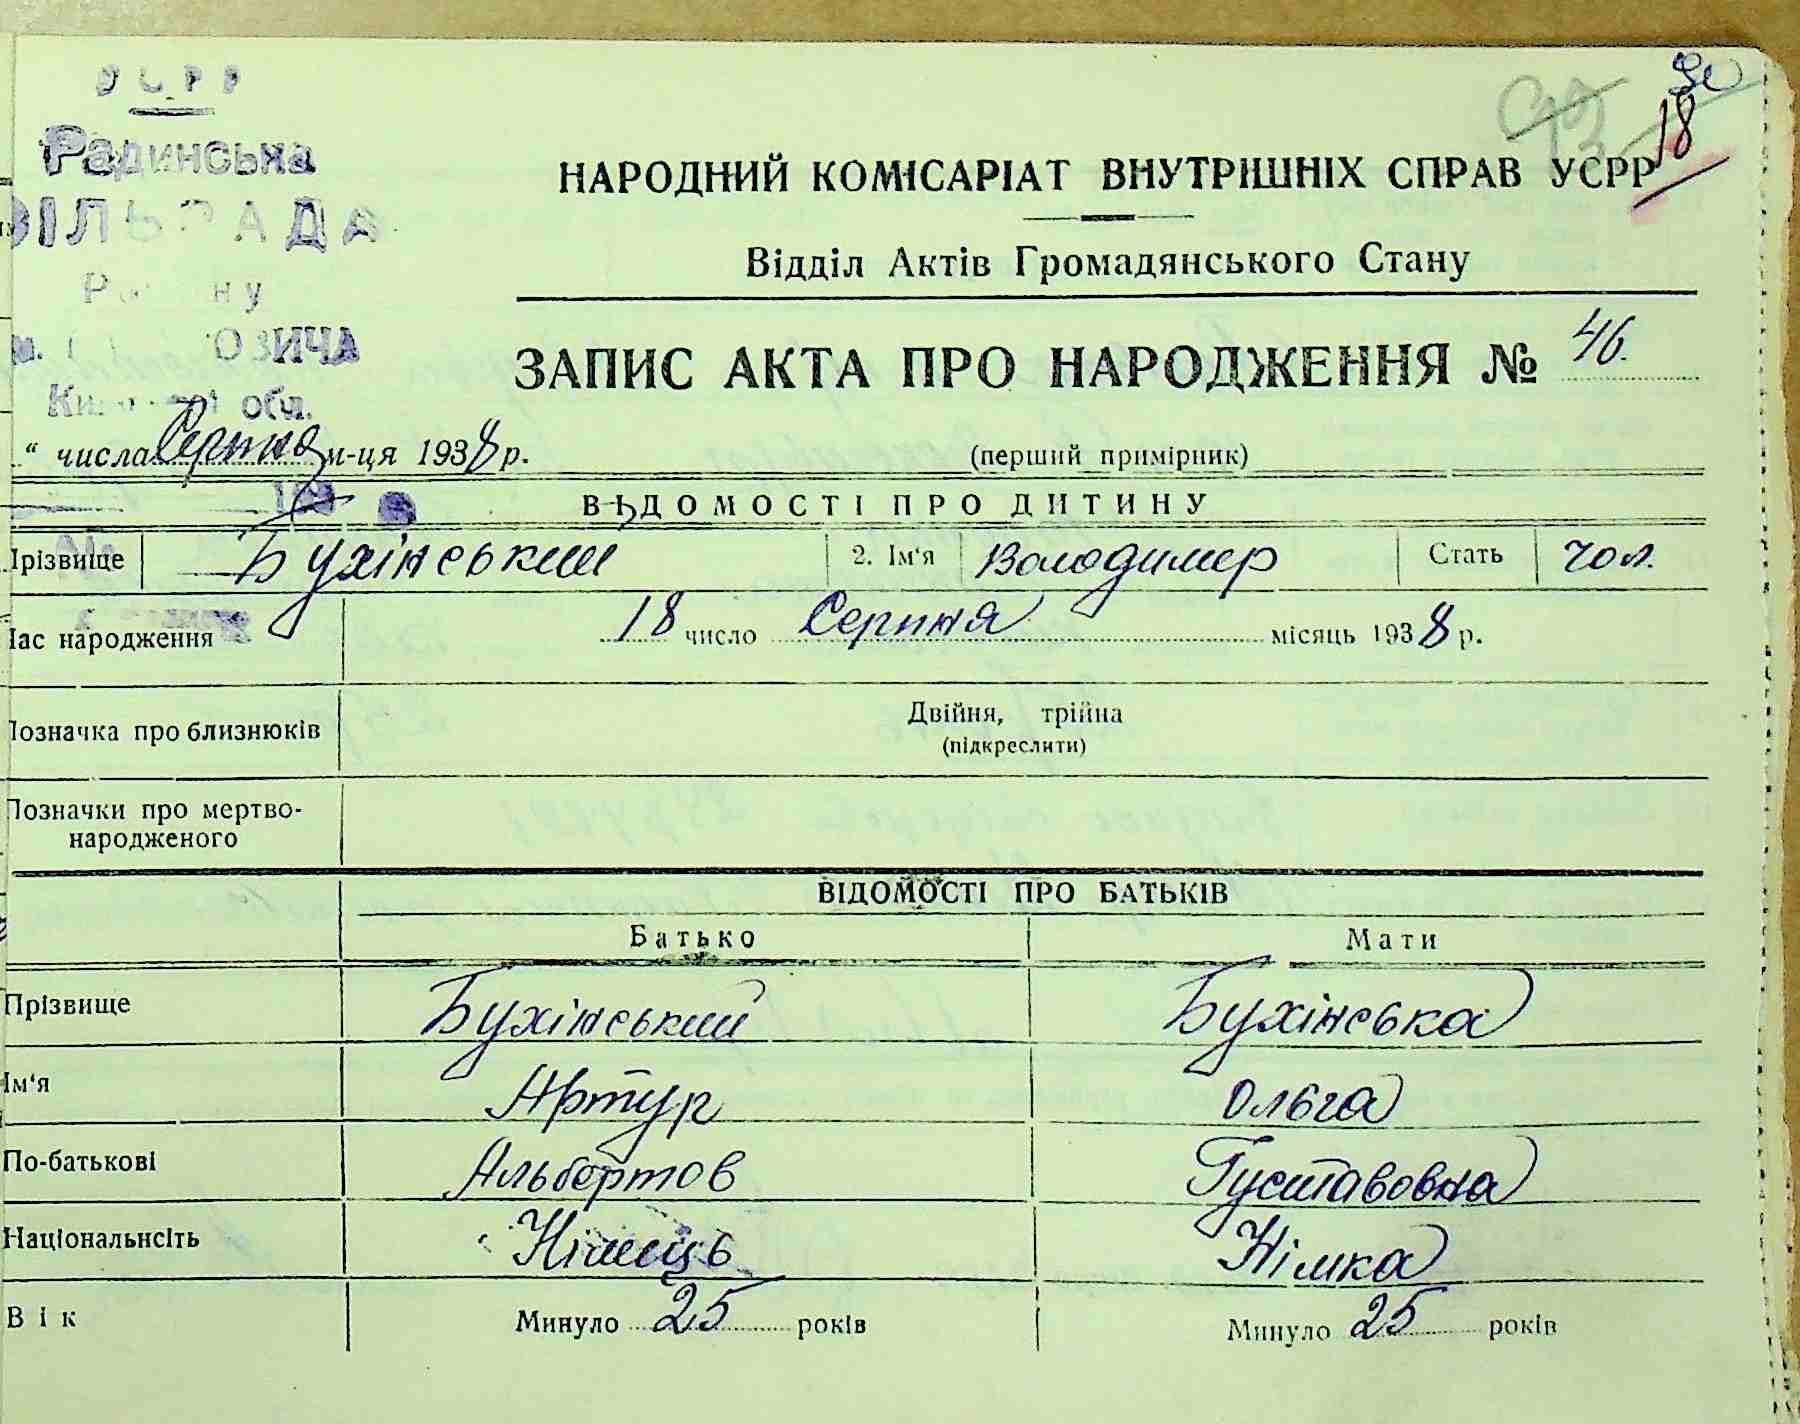 УСРР
Радинська
Зе
18
НАРОДНИЙ КОМІСАРІАТ ВНУТРІШНІХ СПРАВ УСРР
Відділ Актів Громадянського Стану
ЗАПИС АКТА ПРО НАРОДЖЕННЯ № 46.
обл.
“ числа Серпня м-ця 1938 р. (перший примірник)
ВІДОМОСТІ ПРО ДИТИНУ
Прізвище Бухінський 2. Ім‘я Володимер Стать чол.
Час народження 18 число Серпня місяць 1938 р.
Позначка про близнюків Двійня, трійна
(підкреслити)
Позначки про мертво-
народженого
ВІДОМОСТІ ПРО БАТЬКІВ
Батько Мати
Прізвище Бухінський Бухінська
Ім‘я Артур Ольга
По-батькові Альбертов Густавовна
Національнсіть Німець Німка
Вік Минуло 25 років Минуло 25 років